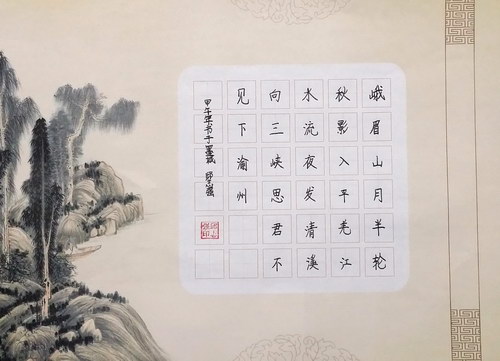 峨眉山月半轮
秋影入平羌江
水流夜发清溪
向三峡思君不
见下渝州